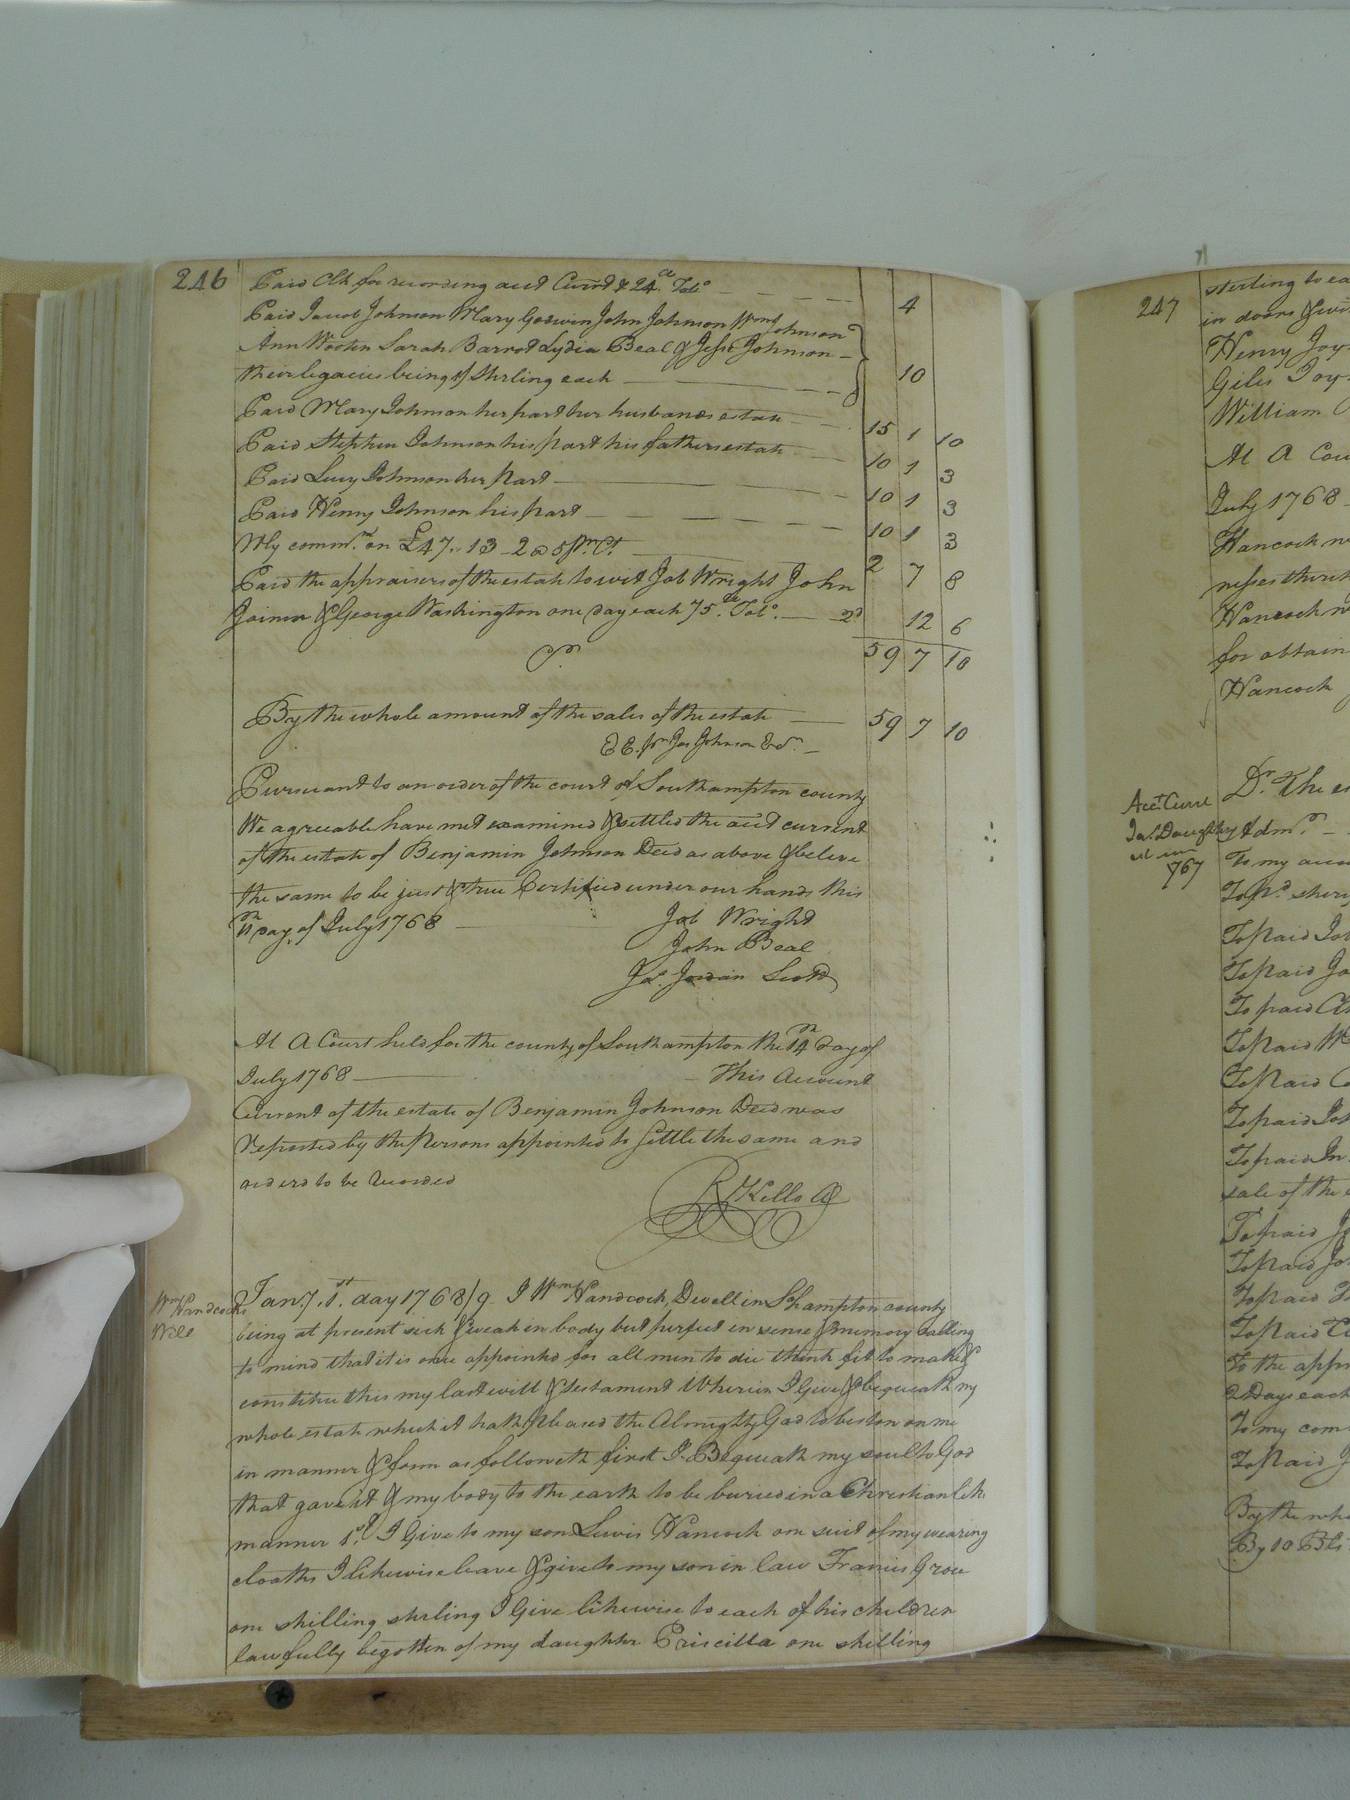 246
Paid Clk for recording acct Currt & 24.a Tobo 4
Paid Jacob Johnson Mary Godwin John Johnson Wm Johnson
Ann Wooten Sarah Barrot Lydia Beal & Jesse Johnson
their legacies being 1/ Sterling each 10
Paid Mary Johnson her part her husbands estate 15 1 10
Paid Stephen Johnson his part his fathers estate 10 1 3
Paid Lucy Johnson her part 10 1 3
Paid Henry Johnson his part 10 1 3
My commn. on £47..13..2 @ 5 Pr. Ct. 2 7 8
Paid the appraisers of the estate to wit Job Wright John
Joiner & George Washington one day each 75.a Tobo. 2d 12 6
59 7 10
Cr
By the whole amount of the sales of the estate 59 7 10
E E. Pr Jas Johnson Exr.
Pursuant to an order of the court of Southampton county
We agreeable have met examined & settled the acct current
of the estate of Benjamin Johnson Decd as above & beleve
the same to be just & true Certified under our hands this
day of July 1768
Job Wright
John Beal
Js. Jordan Scott
At A Court held for the county of Southampton the 14th day of
July 1768 This Account
Current of the estate of Benjamin Johnson Decd was
reported by the Persons appointed to settle the same and
orderd to be recorded
R Kello Cl
Wm Handcocks
Will
Jany. 1st. day 1768/9 I Wm Handcock, Dwell in Shampton county
being at present sick & weak in body but perfect in sense & memory calling
to mind that it is once appointed for all men to die think fit to make &
constitue this my last will & testament Wherein I Give & bequeath my
whole estate which it hath pleased the Almighty God to bestow on me
in manner & form as followeth first I Bequeath my soul to God
that gave it & my body to the earth to be buried in a Christian like
manner 1st I Give to my son Lewis Hancock one suit of my wearing
cloaths I likewise leave & give to my son in law Francis Grove
one shilling sterling I Give likewise to each of his children
lawfully begotten of my daughter Priscilla one shilling
247
sterling to ea
in doors & wit
Henry Joy
Giles Joy
William
At A Cou
July 1768
Hancock w
nesses there
Hancock w
for obtain
Hancock
Acct. Curre
Jas. Daughtry
1767
Dr. The es
Adms.
To my acco
To pd. sheri
To paid Jo
To paid Jo
To paid
To paid Wm
To paid
To paid Jo
To paid Jn
sale of the
To paid J
To paid Jo
To paid
To paid
To the appr
2 Days each
To my com
To paid J
By the who
By 10 Bls